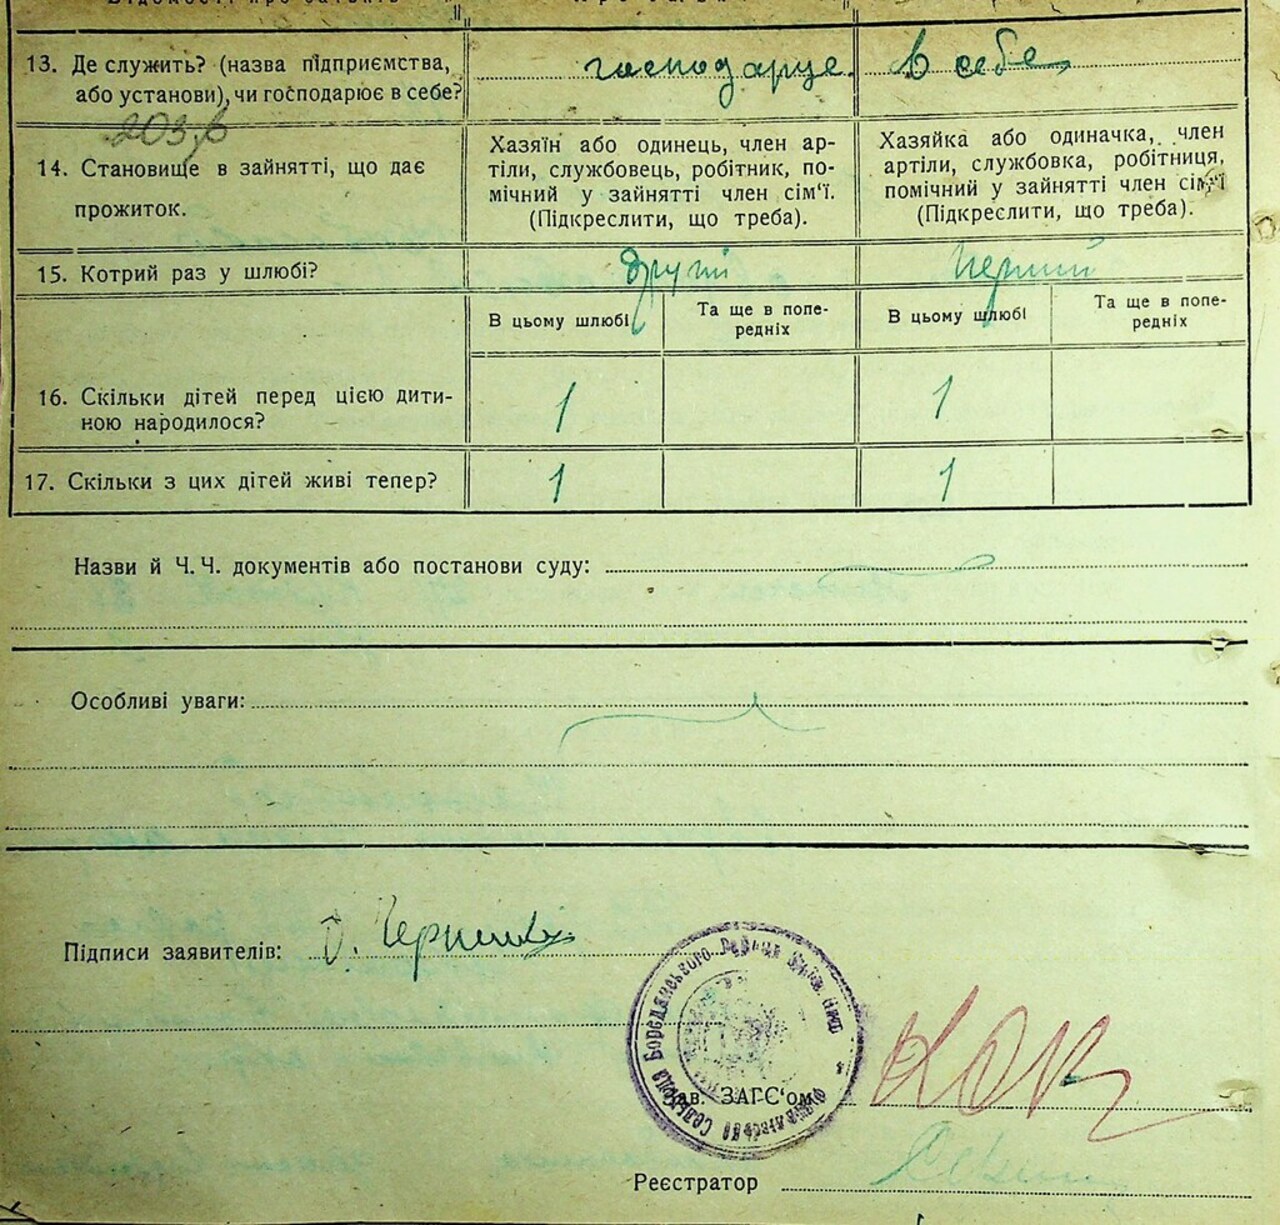 13. Де служить? (назва підприємства, або установи), чи господарює в себе?
господарює в себе
203 в
14. Становище в зайнятті, що дає прожиток.
Хазяїн або одинець, член ар-
тіли, службовець, робітник, по-
мічний у зайнятті член сім'ї.
(Підкреслити, що треба).
Хазяйка або одиначка, член
артіли, службовка, робітниця,
помічний у зайнятті член сім'ї
(Підкреслити, що треба).
15. Котрий раз у шлюбі?
другий
перший
В цьому шлюбі
Та ще в попе-
редніх
В цьому шлюбі
Та ще в попе-
редніх
16. Скільки дітей перед цією дити-
ною народилося?
1
1
17. Скільки з цих дітей живі тепер?
1
1
Назви й Ч. Ч. документів або постанови суду:
Особливі уваги:
Підписи заявителів:
Бородянського Району
Сельрада
Зав. ЗАГС'ом
Реєстратор